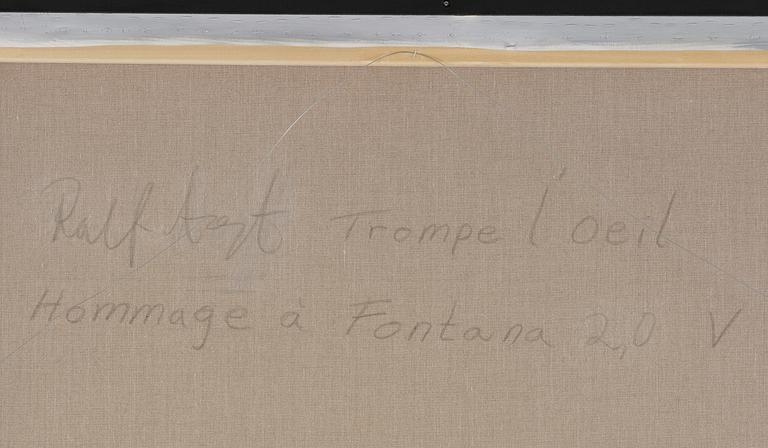 Ralf Arzt Trompe l'Oeil
Hommage à Fontana 2,0 V